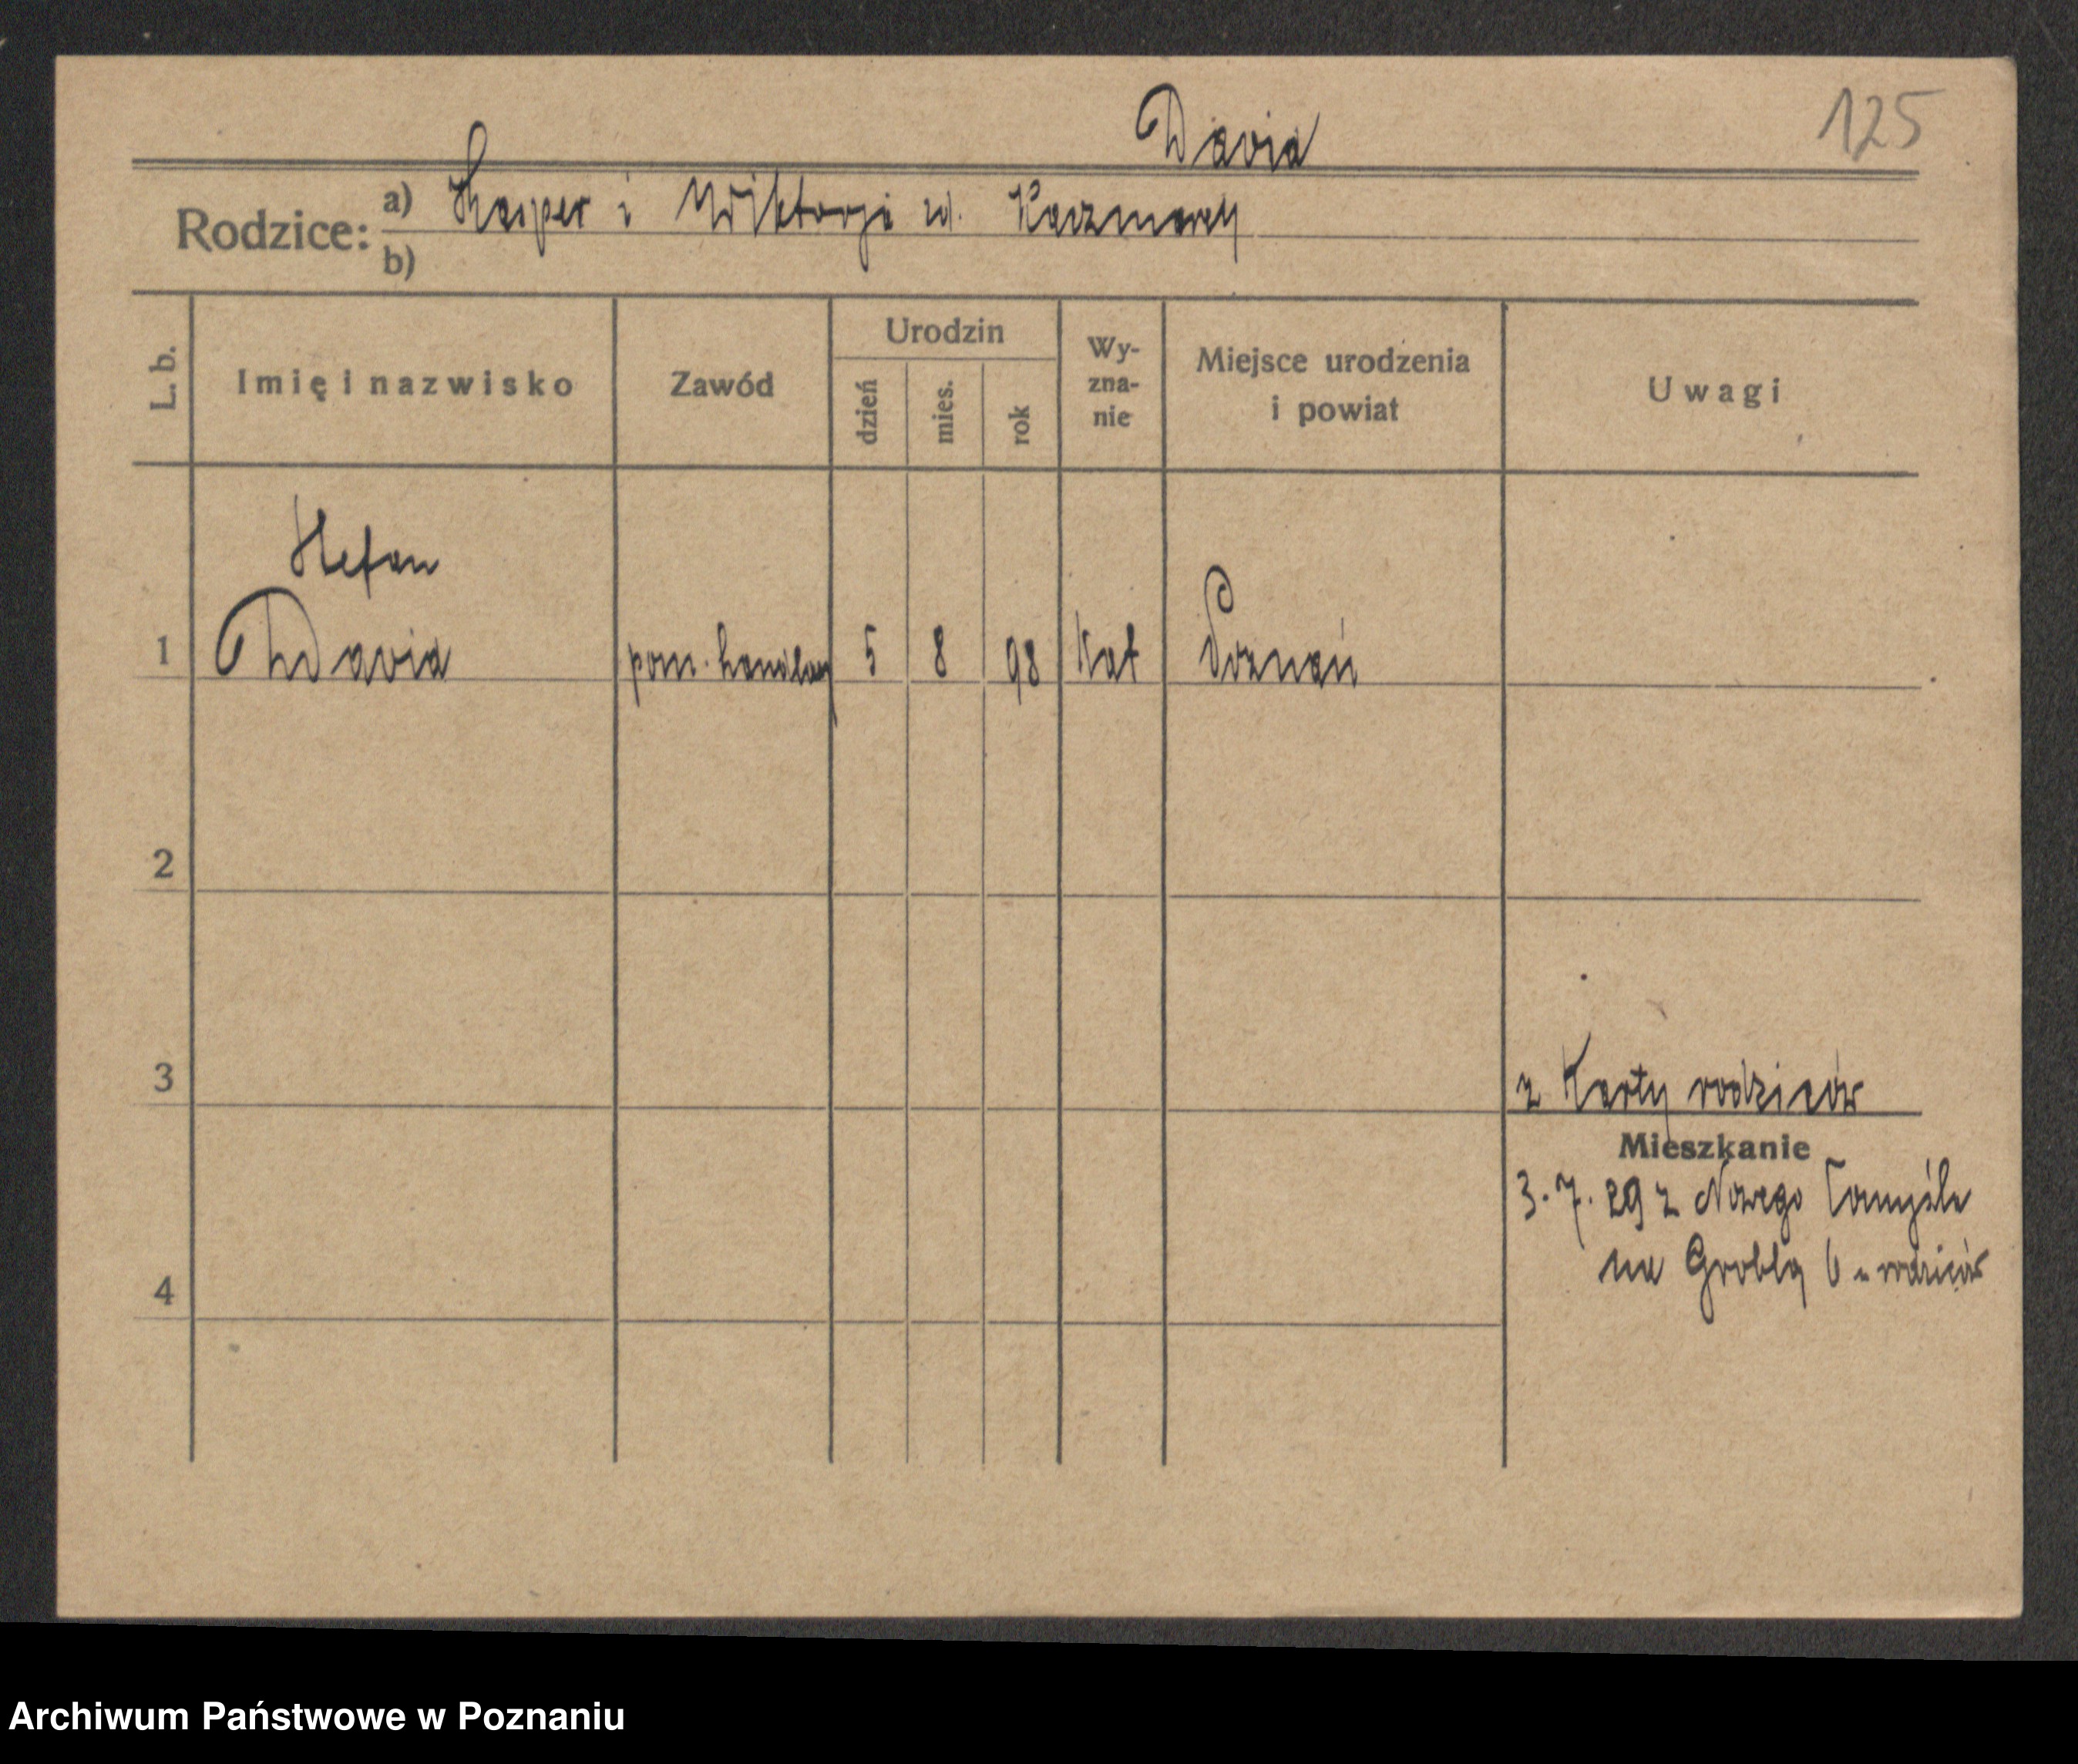 125
Davia
Rodzice: a) Kasper i Wiktorja ur. Kaczmarek
b)
L. b.
Imię i nazwisko
Zawód
Urodzin
dzień
mies.
rok
Wy-
zna-
nie
Miejsce urodzenia
i powiat
Uwagi
Stefan
1 Davia pom. handlowy 5 8 98 kat Poznań
2
3
z Karty rodziców
Mieszkanie
3.7.29 z Nowego Tomyśla
na Groblą 6 u rodziców
4
Archiwum Państwowe w Poznaniu